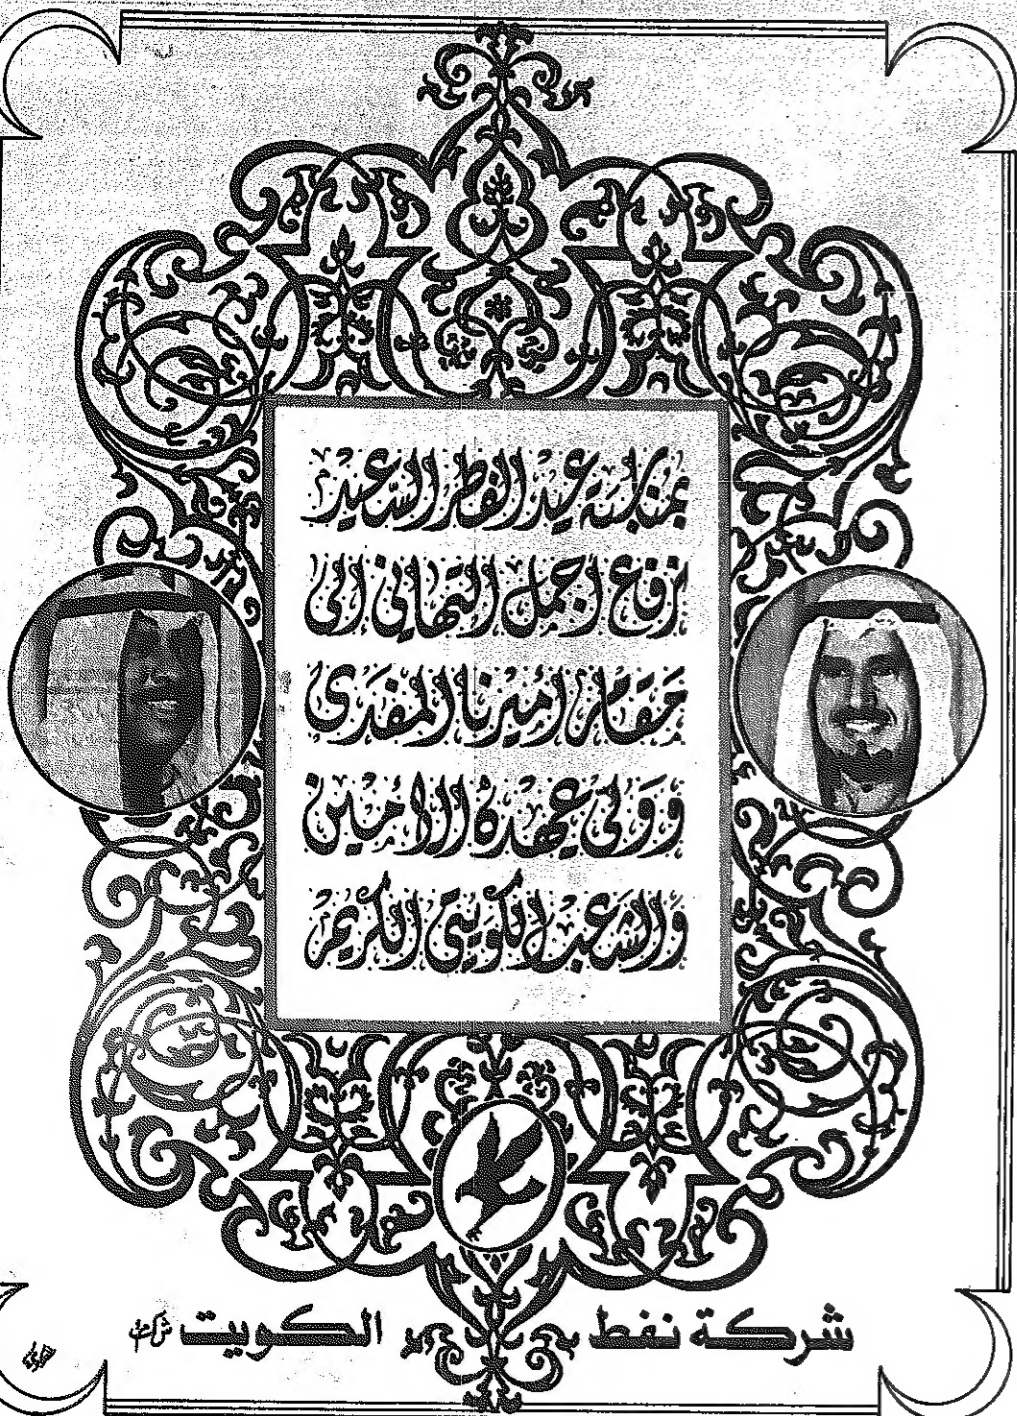 بمناسبة عيد الفطر السعيد
نرفع اجمل التهاني الى
مقام أميرنا المفدى
وولي عهده الأمين
والشعب الكويتي الكريم
شركة نفط الكويت ش.ك.م